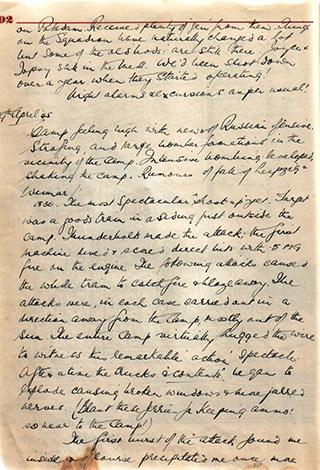 92
on Potsdam. Received plenty of gen from them. Things
on the Squadron have naturally changed a lot
but some of the old bods are still there. Joyce &
Topsy still in the Mess. We'd been shot down
over a year when they started operating!
Night alarms & excursions as per usual!
April 45
Camp feeling high with news of Russian offensive.
Strafing, and large bomber formations in the
vicinity of the Camp. Intensive bombing
shaking the Camp. Rumours of fall of Leipzig &
Weimar!
1830. The most spectacular "shoot-up" yet. Target
was a goods train in a siding just outside the
camp. Thunderbolts made the attack; the first
machine lined & scored direct hits with .5 MG
fire on the engine. The following attack caused
the whole train to catch fire & blaze away. The
attacks were, in each case carried out in a
direction away from the Camp, mostly out of the
sun. The entire Camp virtually hugged the wire
to witness this remarkable 'action' spectacle.
After a time the trucks & 'contents' began to
explode causing broken windows & more jarred
nerves. (Blast these Jerries for keeping ammo:
so near to the Camp!)
The first burst of the attack found me
inside & of course precipitated me once more